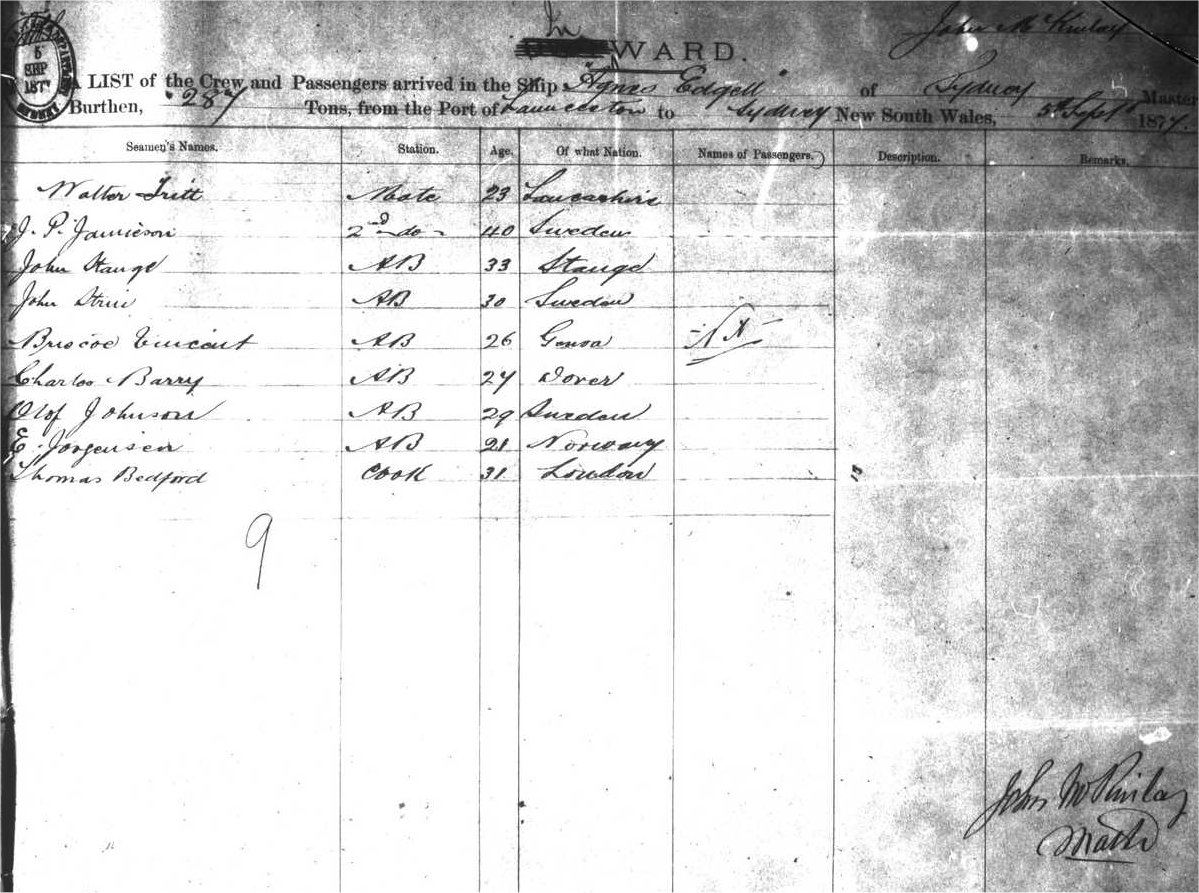 In
WARD.
John McKinlay
5
SEP
187
A LIST of the Crew and Passengers arrived in the Ship "Agnes Edgell" of Sydney Master
Burthen, 287 Tons, from the Port of Launceston to Sydney New South Wales, 5th Sept 1877.
Seamen's Names. Station. Age. Of what Nation. Names of Passengers. Description. Remarks.
Walter Tritt Mate 23 Lancashire
J. P. Jamieson 2nd do 40 Sweden
John Stange AB 33 Stange
John AB 30 Sweden
Briscoe Vincent AB 26 Genoa
Charles Barry AB 27 Dover
Olof Johnson AB 29 Sweden
E. Jorgensen AB 21 Norway
Thomas Bedford Cook 31 London
9
John McKinlay
Master